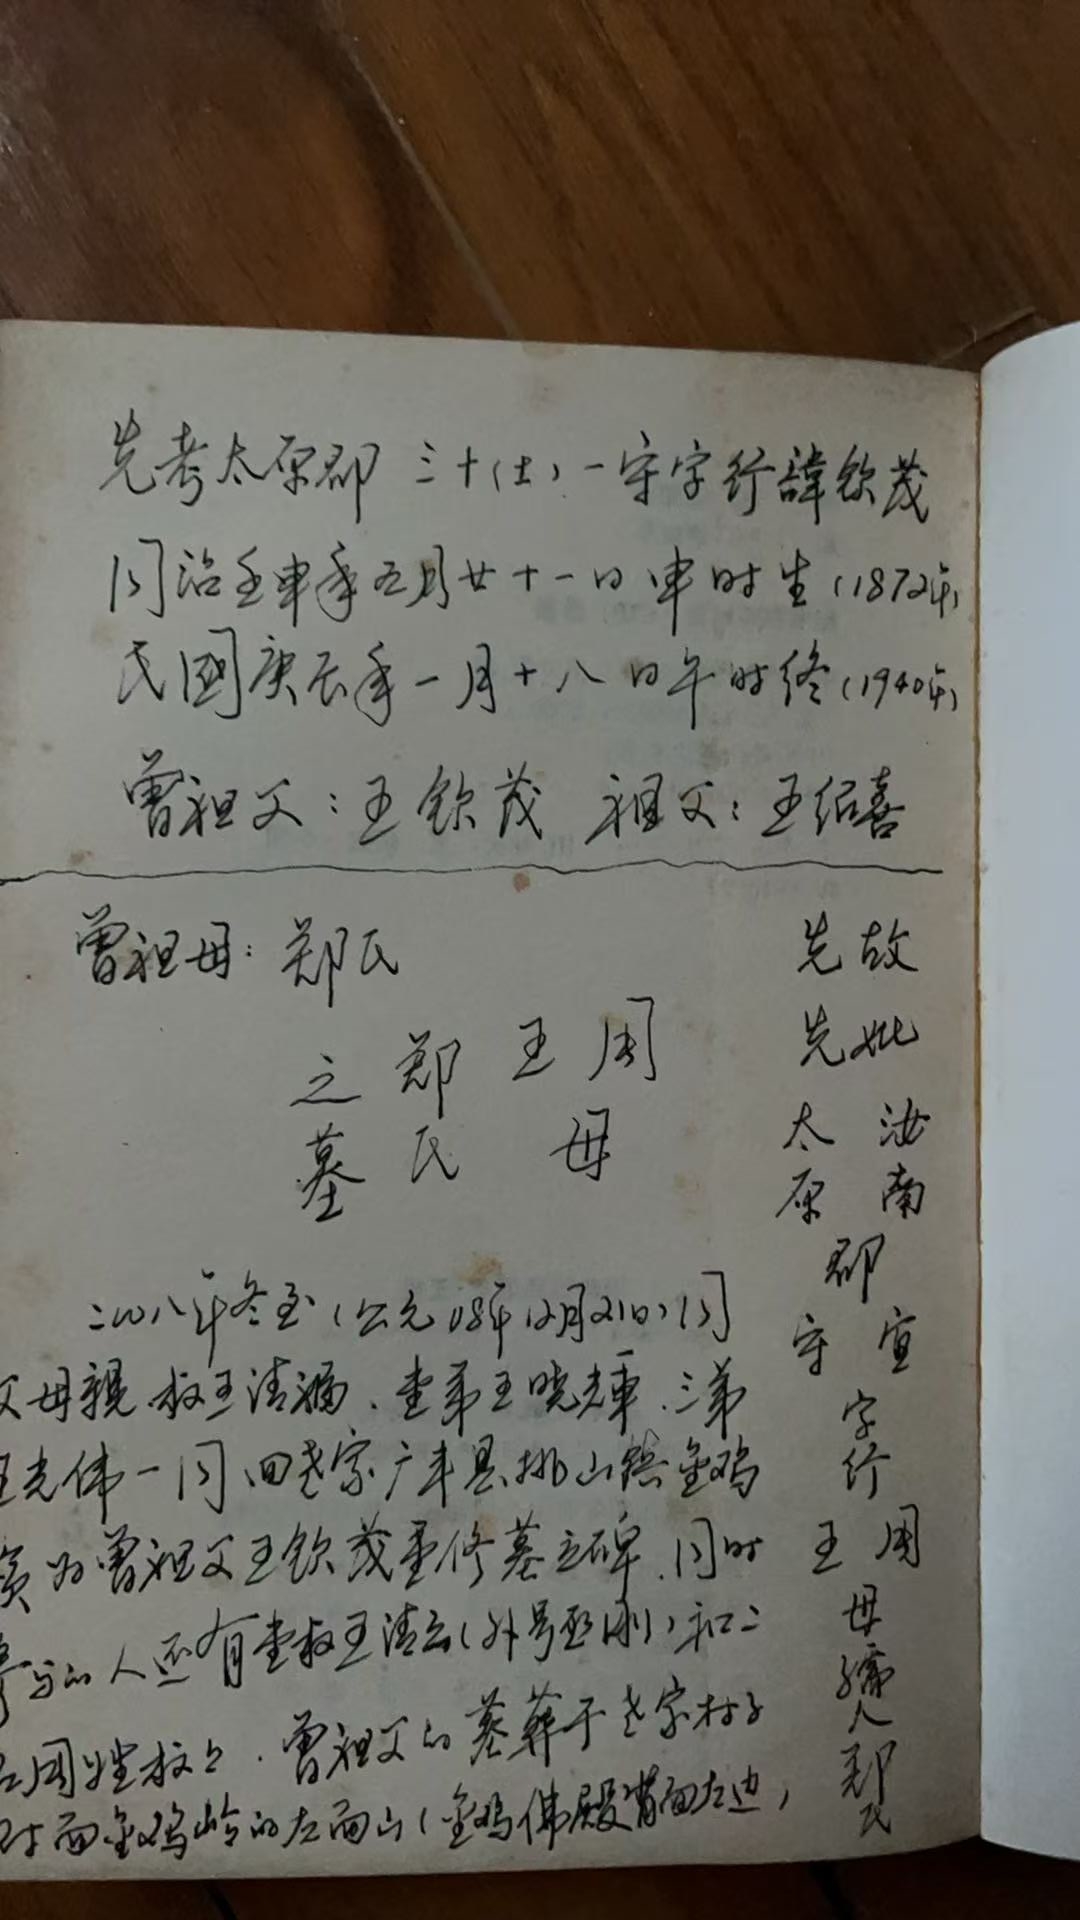 先考太原郡 三十(土)一守字行諱欽茂
同治壬申年五月廿十一日申时生(1872年)
民國庚辰年一月十八日午时终(1940年)
曾祖父:王钦茂 祖父:王绍喜
曾祖母:郑氏
先故
先妣
太原 汝南
郡
守 宜
字行
王 周
母孺人郑氏
周母
王
郑氏
之墓
二〇〇八年冬至(公元08年12月21日)同
父母親 叔王清福、堂弟王晓東、三弟
王光伟一同回老家广丰县排山镇金鸡
为曾祖父王钦茂重修墓立碑.同时
的人还有堂叔王清云(外号丞刚)和二
周姓叔公.曾祖父的墓葬于老家村子
对面金鸡岭的左面山(金鸡佛殿背面左边)